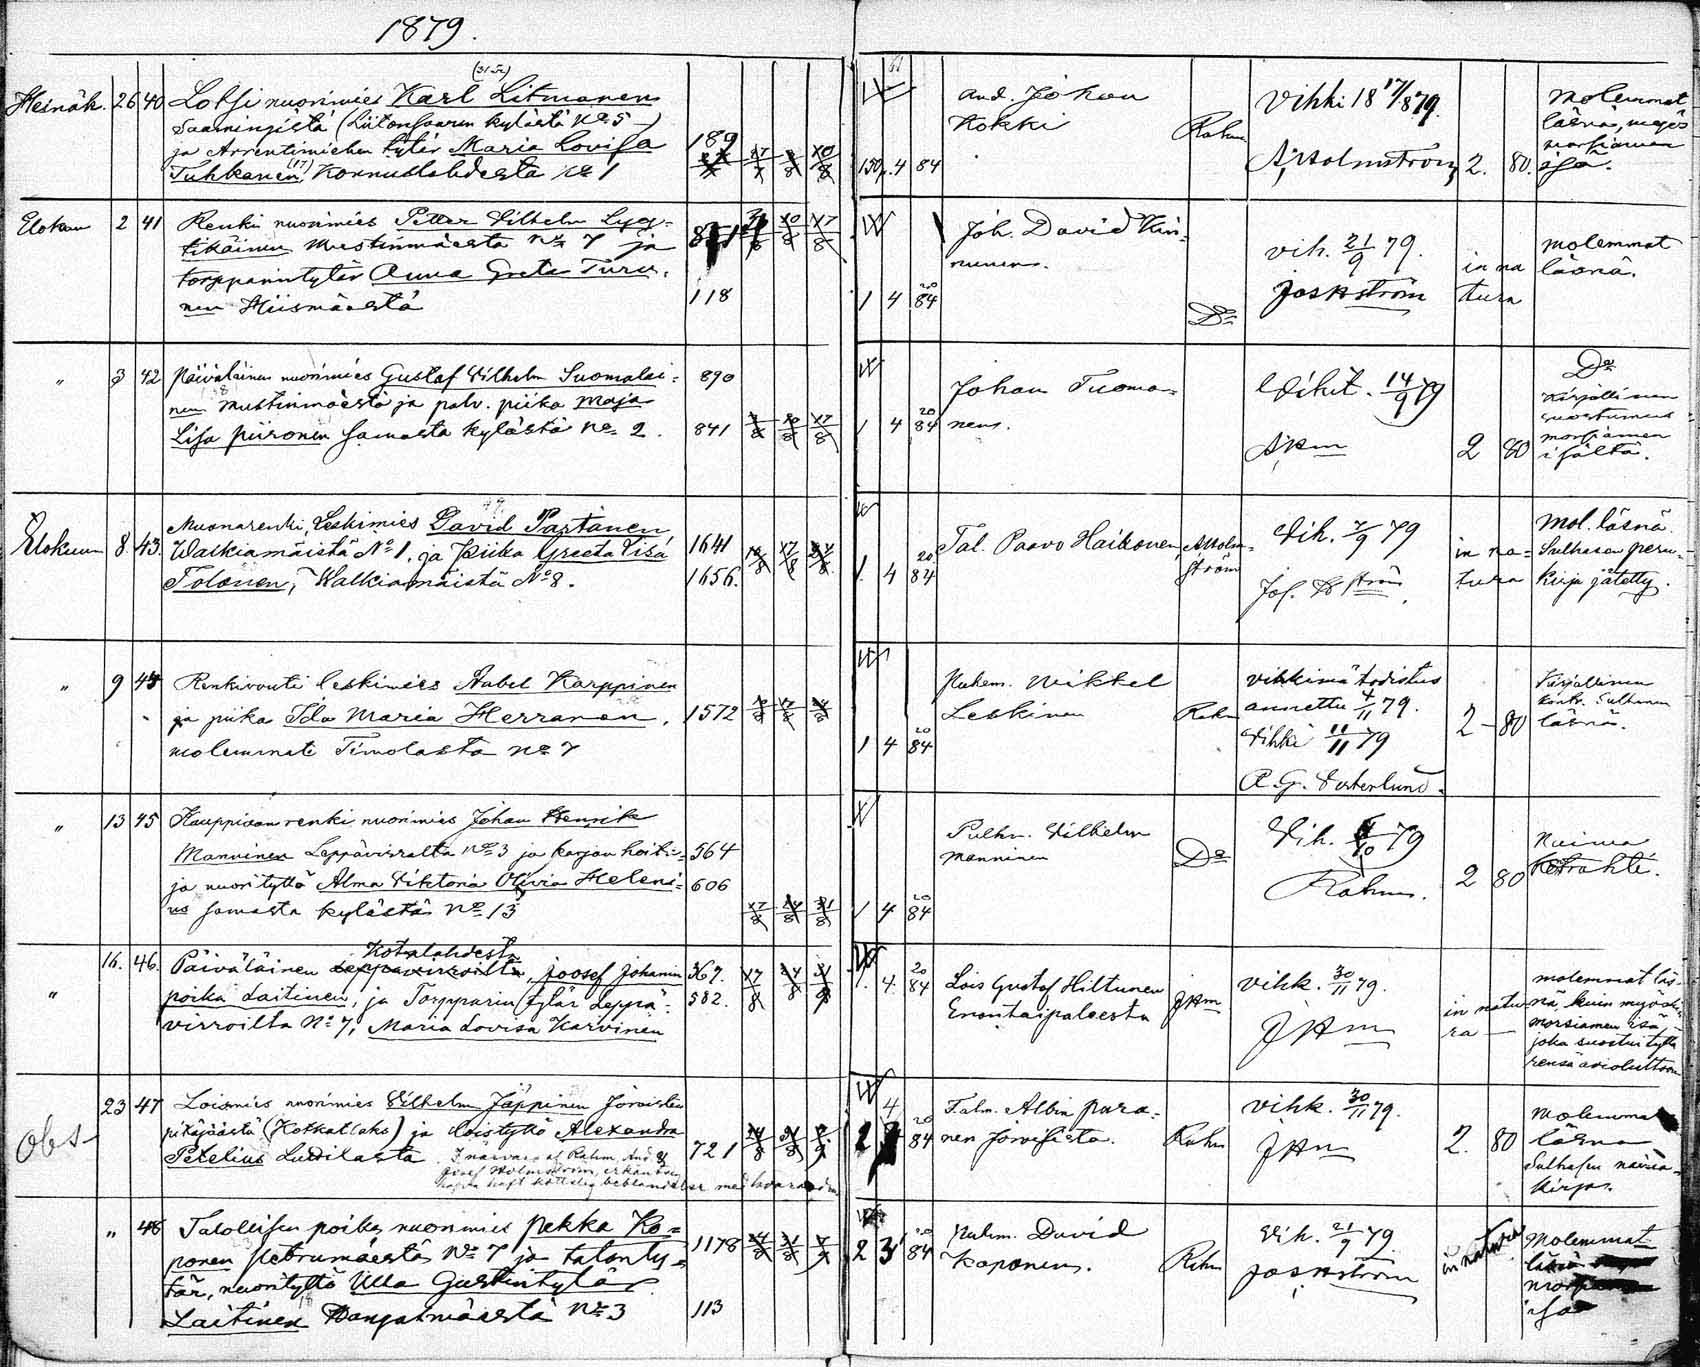 1879.
Heinäk. 26 40 Lotsi nuorimies Karl Litmanen
Saamingista (Liitonsaaren kylästä No 5)
ja Arrentimiehen tytär Maria Lovisa 189
Tuhkanen, (17) Konnuslahdesta No 1
150 p. 4 84
And. Johan
Kokki
Rahm
Vihki 18 17/8 79.
A. Holmström
2. 80.
Molemmat
läsnä, myös
morsiamen
isä.
Elokuu 2 41 Renki nuorimies Petter Vilhelm Lyy-
tikäinen Mustinmäestä No 7 ja
torpparintytär Anna Greta Turu-
nen Hiismäestä 118
1 4 20/84
Joh. David Kin-
nunen.
Do
vih. 21/9 79.
Jos Hström
in na
tura
molemmat
läsnä.
" 3 42 Päiväläinen nuorimies Gustaf Vilhelm Suomalai- 890
nen Mustinmäestä ja palv. piika Maja
Lisa Piironen samasta kylästä No 2. 841
1 4 20/84
Johan Tuoma-
nen.
Vihit. 14/9 79
2 80
Do
Kirjallinen
suostumus
morsiamen
isältä.
Elokuun 8. 43. Muonarenki, Leskimies David Partanen 1641
Walkiamäistä No 1, ja Piika Greeta Lisa
Tolonen, Walkiamäistä No 8. 1656.
1. 4 20/84
Tal. Paavo Haikonen
A Holm-
ström
Vih. 7/9 79
Jos. Hström
in na-
tura
Mol. läsnä.
Sulhasen peru-
kirja jätetty.
" 9 44 Renkivouti leskimies Aabel Karppinen
ja piika Ida Maria Herranen, 1572
molemmat Timolasta No 7
1 4 20/84
Mikkel
Leskinen
Rahm
vihkimä todistus
annettu 4/11 79.
Vihki 11/11 79
A. G. Österlund.
2 - 80
Kirjallinen
Sulhanen
läsnä.
" 13 45 Kauppiaan renki nuorimies Johan Henrik
Manninen Leppävirralta No 3 ja karjan hoita- 564
ja nuorityttö Alma Viktoria Olivia Heleni- 606
us samasta kylästä No 13
1 4 20/84
Vilhelm
Manninen
Do
Vih. 79
Rahm.
2 80
16. 46. Kotalahdesta
Päiväläinen Leppävirroilta, Joosef Johanin 367.
" poika Laitinen, ja Torpparin tytär Leppä- 582.
virroilta No 7, Maria Lovisa Karvinen
1. 4. 20/84
Lois Gustaf Hiltunen
Enontaipaleesta
JHm
vihk. 30/11 79.
JHm
in natu
ra
molemmat läs-
nä, kuin myöski
morsiamen isä
joka suostui tyttä
rensä avioliittoon
Obs 23 47 Loismies nuorimies Vilhelm Jäppinen Joroisten
pitäjäästä (Kotkatlaks) ja loistyttö Alexandra
Petelius Luttilasta 721
2 4 20/84
Talm. Albin Para-
nen Jorosista.
Rahm
vihk. 30/11 79.
JHm
2. 80
Molemmat
läsnä
Sulhasen
kirja.
" 48 Talollisen poika, nuorimies Pekka Ko-
ponen Petrumäestä No 7 ja talonty- 1178
tär, nuorityttö Ulla Gustintytär
Laitinen Kangasmäestä No 3 113
2 3 20/84
David
Koponen.
Rahm
Vih. 21/9 79.
Jos Hström
in natura
Molemmat
läsnä
isä